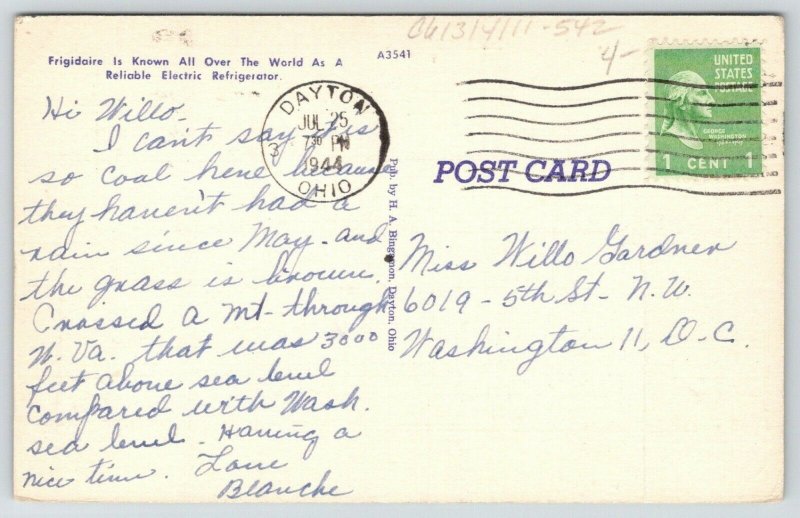 Frigidaire Is Known All Over The World As A
Reliable Electric Refrigerator.
A3541
4-
DAYTON
JUL 25
7 30 PM
1944
OHIO
3
UNITED
STATES
POSTAGE
GEORGE WASHINGTON
1 CENT 1
POST CARD
Pub. by H. A. Bingamon, Dayton, Ohio
Hi Willo-
I can't say its
so cool here because
they haven't had a
rain since May - and
the grass is brown.
Crossed a mt- through
W. Va. that was 3000
feet above sea level
compared with Wash.
sea level. Having a
nice time. Love
Blanche
Miss Willo Gardner
6019 - 5th St - N.W.
Washington 11, D.C.